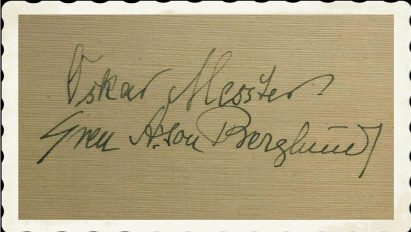 Oskar Messter
Sven A:son Berglund